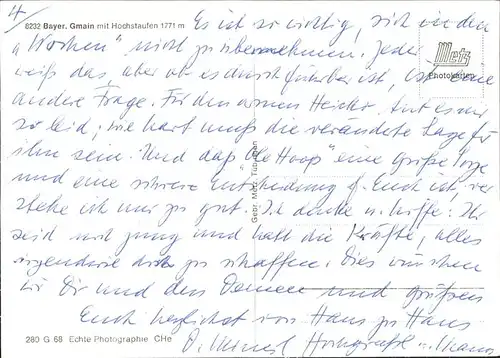 4/
8232 Bayer. Gmain mit Hochstaufen 1771 m
Es ist so wichtig, sich in den
"Wochen" nicht zu übernehmen. Jeder
Metz
Photokarten
weiß das, aber ob es durchführbar ist, ist eine
andere Frage. Für den armen tut es mir
so leid, wie hart muß die veränderte Lage für
ihn sein. Und daß "de Hoop" eine große Sorge
und eine schwere Entscheidung f. Euch ist, ver
stehe ich nur zu gut. Ich denke u. hoffe: Ihr
seid noch jung und habt die Kräfte, alles
irgendwie doch zu schaffen. Dies wünschen
wir Dir und den Deinen und grüßen
Euch herzlichst von Haus zu Haus
Gebr. Metz Tübingen
280 G 68 Echte Photographie CHe